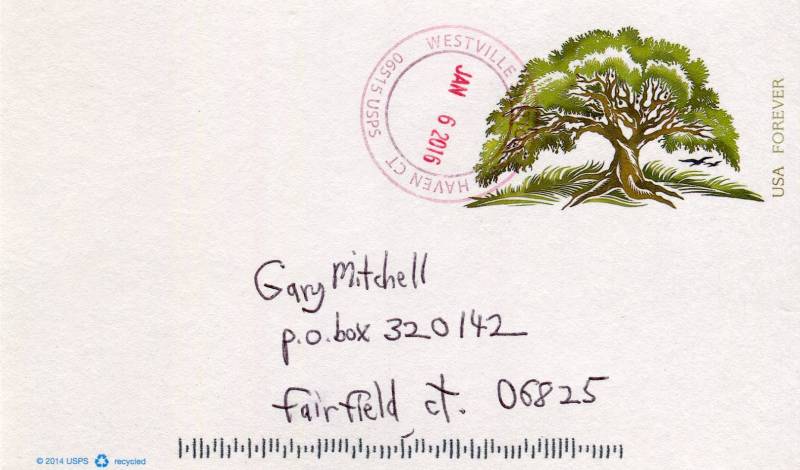 WESTVILLE
06515 USPS
HAVEN CT
JAN 6 2016
USA FOREVER
Gary Mitchell
p.o. box 320142
fairfield ct. 06825
© 2014 USPS recycled